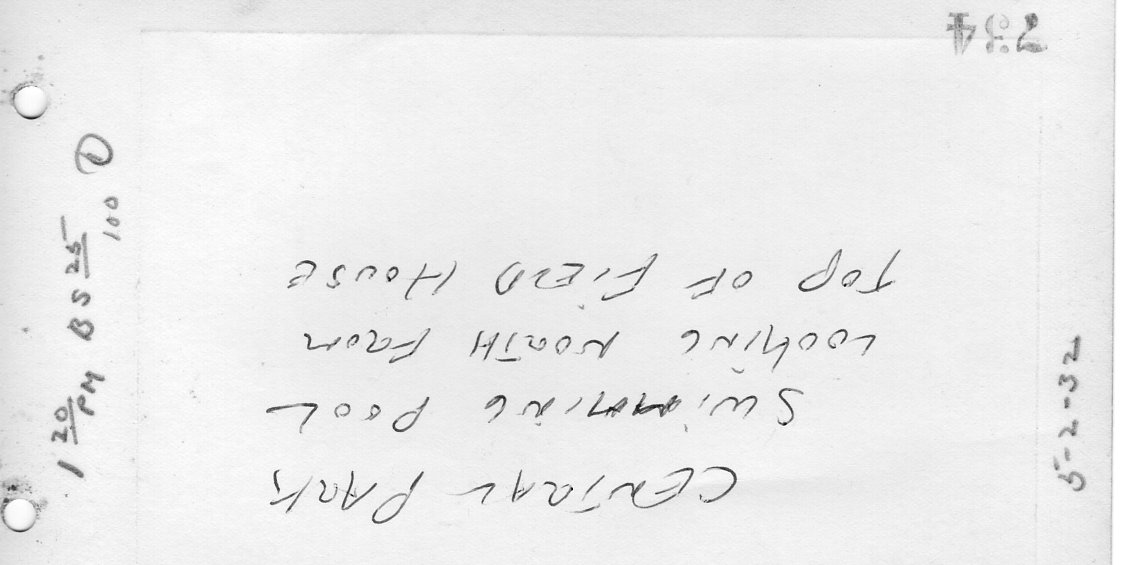 CENTRAL PARK
SWIMMING POOL
LOOKING NORTH FROM
TOP OF FIELD HOUSE
5-2-32
1 20 PM B S 25 100 D
234